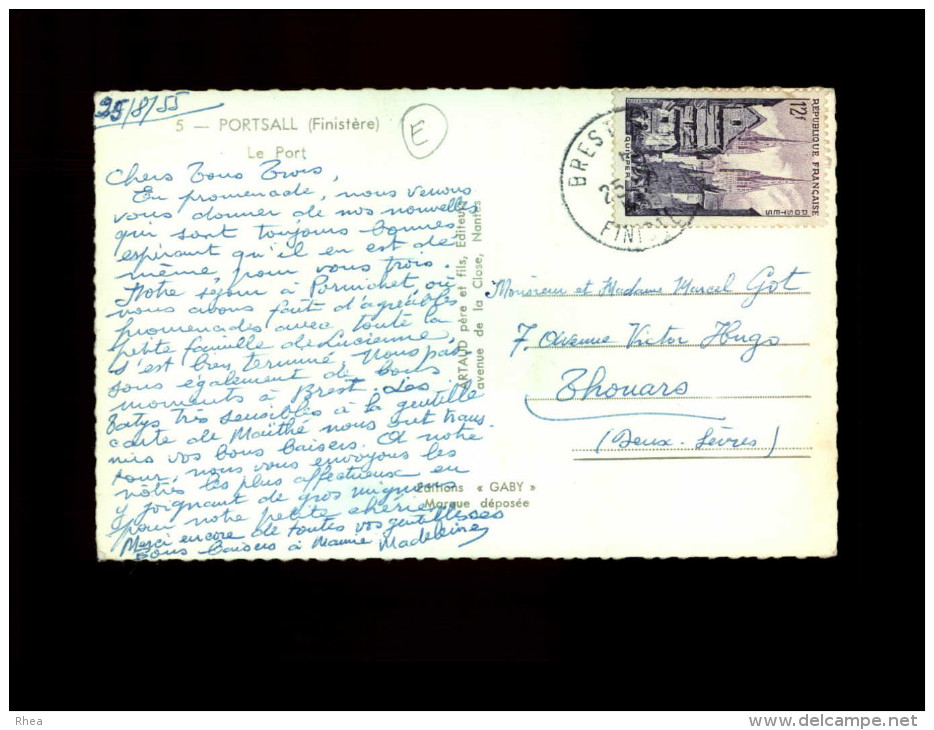 25/8/55
5 — PORTSALL (Finistère)
Le Port
E
Chers Tous Trois,
En promenade, nous venons
vous donner de nos nouvelles
qui sont toujours bonnes
espérant qu'il en est de
même pour vous trois.
Notre séjour à Pornichet, où
nous avons fait d'agréables
promenades avec toute la
petite famille de Lucienne,
s'est bien terminé. Nous pas-
sons également de bons
moments à Brest. Les
très sensibles à la gentille
carte de Maïthé nous ont trans-
mis vos bons baisers. A notre
tour, nous vous envoyons les
nôtres les plus affectueux en
y joignant de gros mignons
pour notre petite chérie.
Merci encore de toutes vos gentillesses
Bons baisers à Mamie Madeleine
ARTAUD père et fils, Editeurs
avenue de la Close, Nantes
Editions « GABY »
Marque déposée
BREST
25
FINISTÈRE
12f
REPUBLIQUE FRANÇAISE
POSTES
QUIMPER
Monsieur et Madame Marcel Got
7. Avenue Victor Hugo
Thouars
(Deux-Sèvres)
Rhea
www.delcampe.net